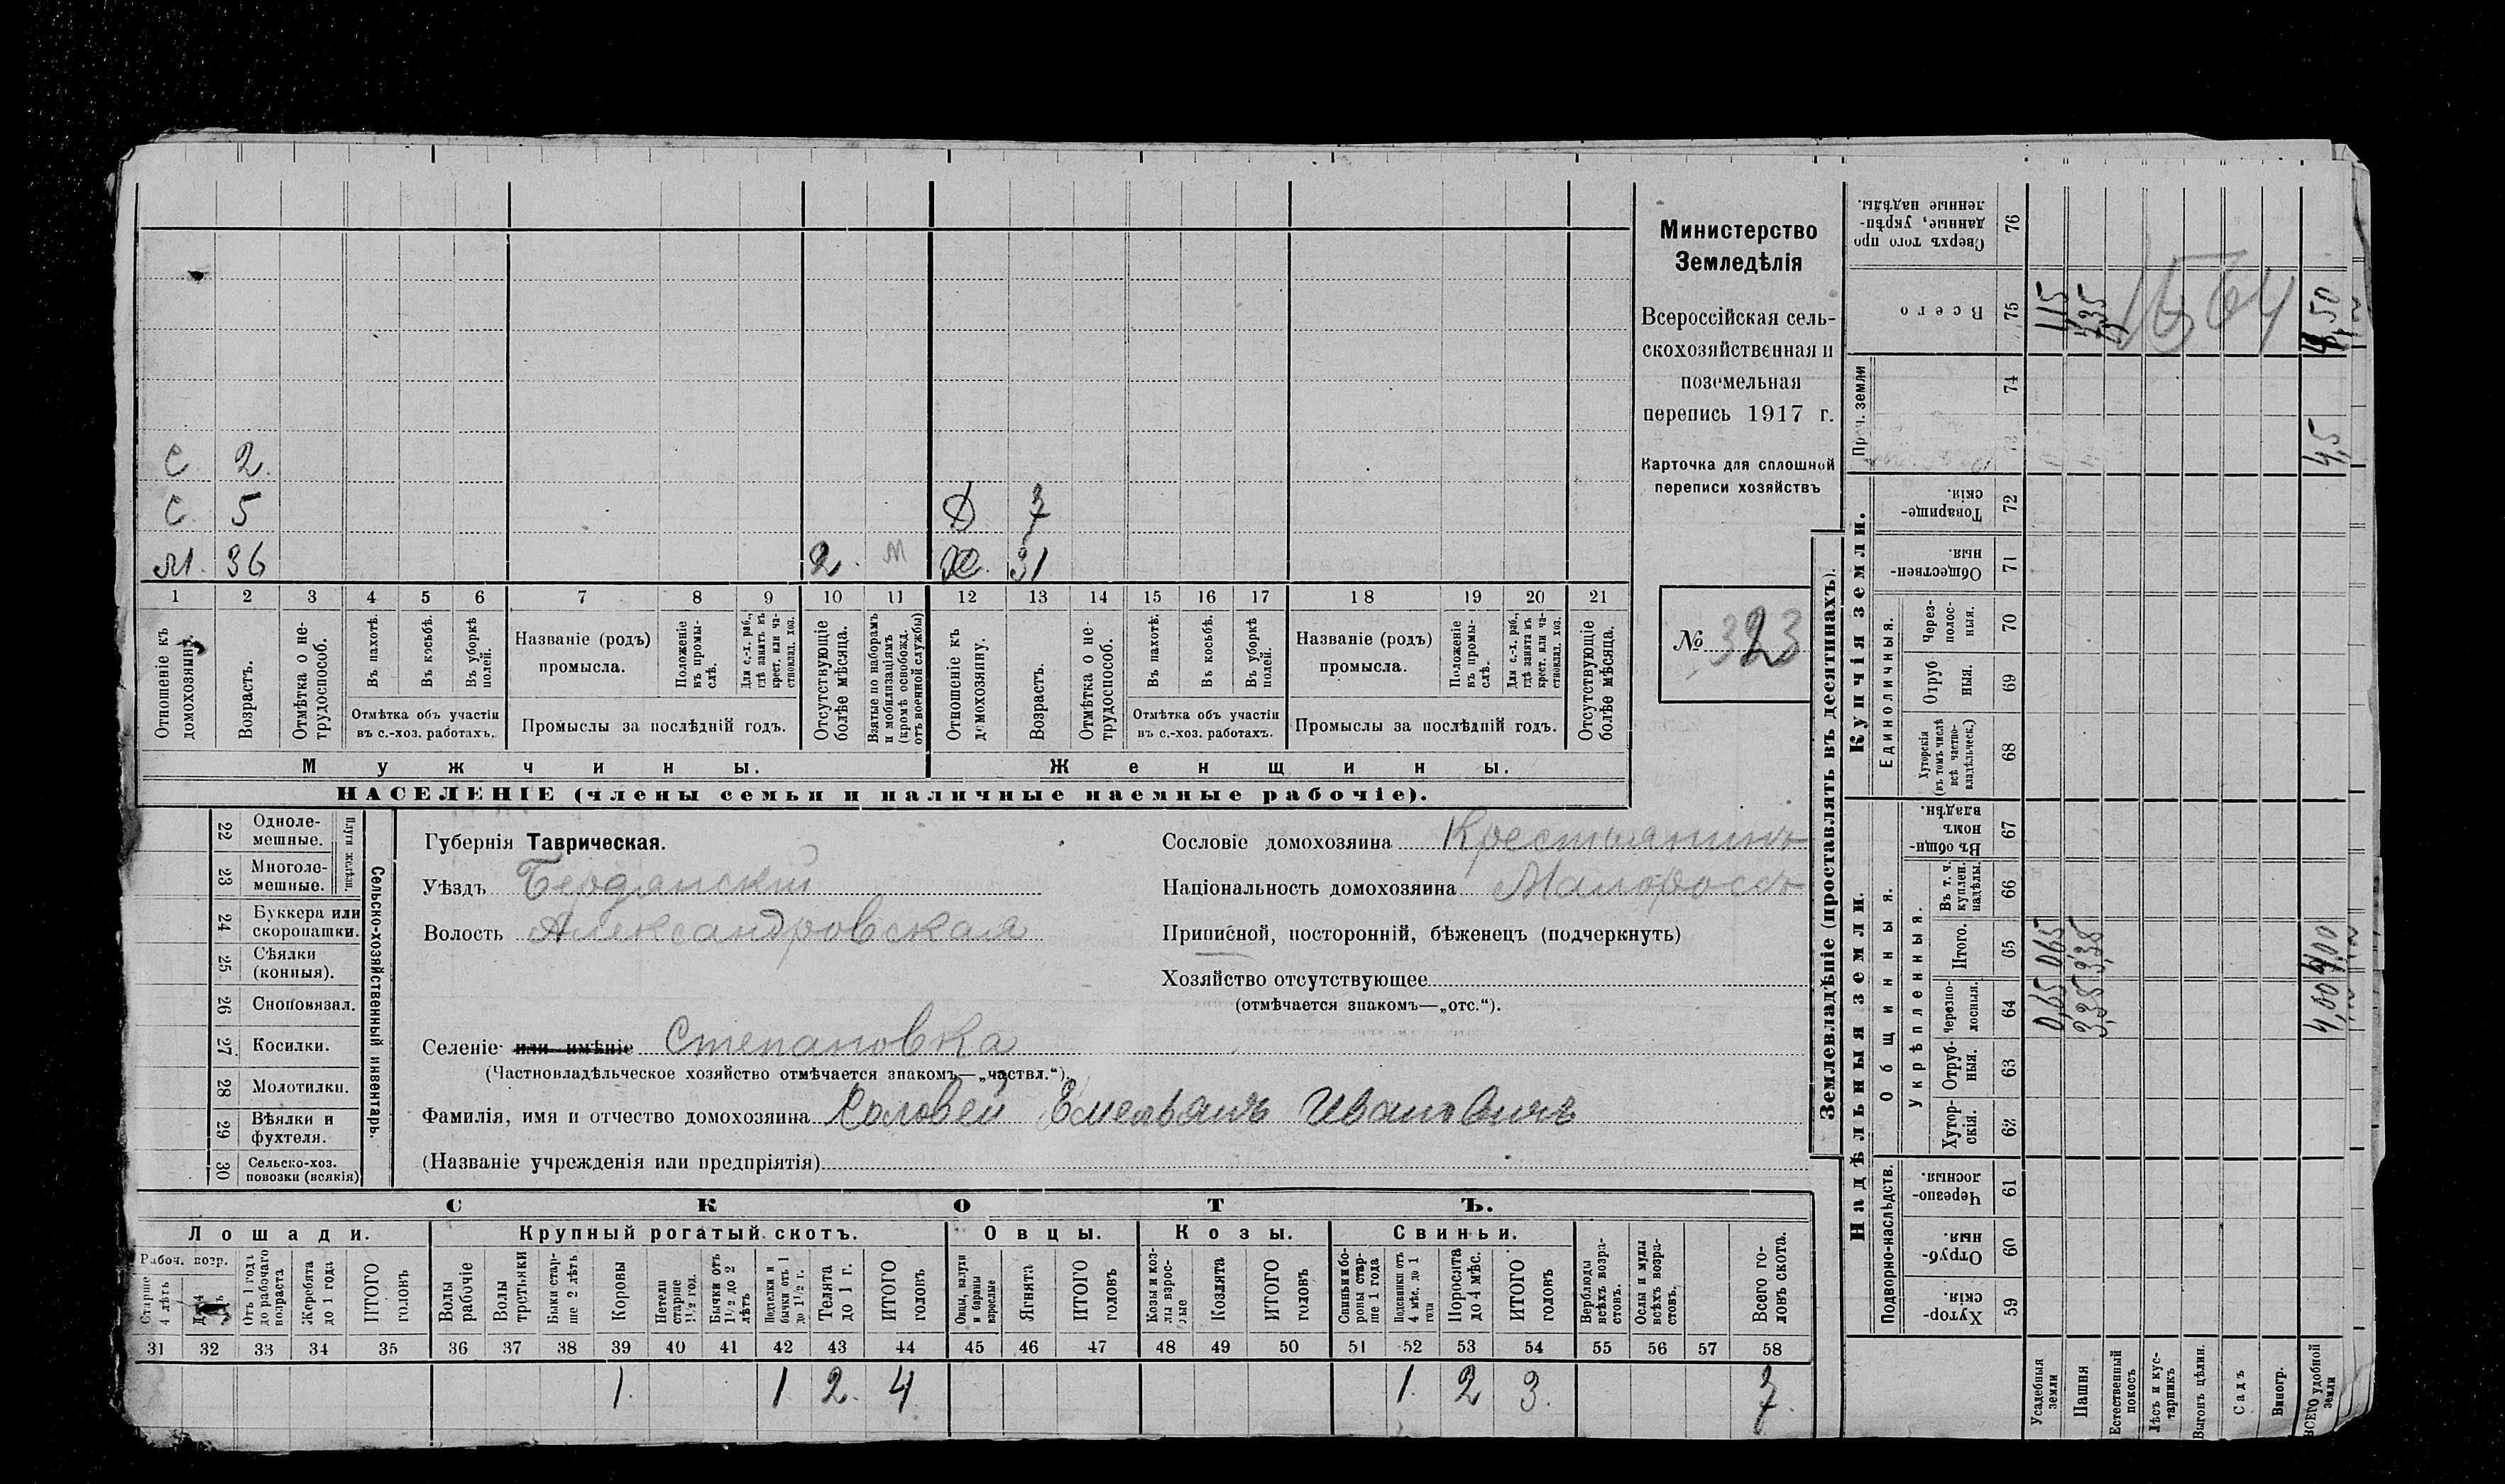 С 2.
С 5 Д 7
М. 36 2. М Ж. 31
1 2 3 4 5 6 7 8 9 10 11 12 13 14 15 16 17 18 19 20 21
Отношеніе къ домохозяину.
Возрастъ.
Отмѣтка о не-
трудоспособ.
Въ пахотѣ.
Въ косьбѣ.
Въ уборкѣ
полей.
Отмѣтка объ участіи
въ с.-хоз. работахъ.
Названіе (родъ)
промысла.
Положеніе
въ промы-
слѣ.
Для с.-х. раб.,
гдѣ занятъ въ
крест. или ча-
стновлад. хоз.
Промыслы за послѣдній годъ.
Отсутствующіе
болѣе мѣсяца.
Взятые по наборамъ
и мобилизаціямъ
(кромѣ освобожд.
отъ военной службы)
Отношеніе къ
домохозяину.
Возрастъ.
Отмѣтка о не-
трудоспособ.
Въ пахотѣ.
Въ косьбѣ.
Въ уборкѣ
полей.
Отмѣтка объ участіи
въ с.-хоз. работахъ.
Названіе (родъ)
промысла.
Положеніе
въ промы-
слѣ.
Для с.-х. раб.,
гдѣ занята въ
крест. или ча-
стновлад. хоз.
Промыслы за послѣдній годъ.
Отсутствующіе
болѣе мѣсяца.
Мужчины. Женщины.
НАСЕЛЕНІЕ (члены семьи и наличные наемные рабочіе).
Министерство
Земледѣлія
Всероссійская сель-
скохозяйственная и
поземельная
перепись 1917 г.
Карточка для сплошной
переписи хозяйствъ
№ 323
22 Одноле-
мешные.
23 Многоле-
мешные.
Плуги желѣзн.
24 Буккера или
скоропашки.
25 Сѣялки
(конныя).
26 Сноповязал.
27 Косилки.
28 Молотилки.
29 Вѣялки и
фухтеля.
30 Сельско-хоз.
повозки (всякія)
Сельско-хозяйственный инвентарь.
Губернія Таврическая.
Уѣздъ Бердянскій
Волость Александровская
Сословіе домохозяина Крестьянинъ
Національность домохозяина Малороссъ
Приписной, посторонній, бѣженецъ (подчеркнуть)
Хозяйство отсутствующее
(отмѣчается знакомъ—„отс.“).
Селеніе или имѣніе Степановка
(Частновладѣльческое хозяйство отмѣчается знакомъ—„частвл.“).
Фамилія, имя и отчество домохозяина Соловей Емельянъ Ивановичъ
(Названіе учрежденія или предпріятія)
СКОТЪ.
Лошади. Крупный рогатый скотъ. Овцы. Козы. Свиньи.
Рабоч. возр.
Старше
4 лѣтъ
Отъ 1 года
до рабочаго
возраста
Жеребята
до 1 года
ИТОГО
головъ
Волы
рабочіе
Волы
третьяки
Быки стар-
ше 2 лѣтъ
Коровы
Нетели
старше
1½ год.
Бычки отъ
1½ до 2
лѣтъ
Подтелки и
бычки отъ 1
до 1½ г.
Телята
до 1 г.
ИТОГО
головъ
Овцы, валухи
и бараны
взрослые
Ягнята
ИТОГО
головъ
Козы и коз-
лы взрос-
лые
Козлята
ИТОГО
головъ
Свиньи и бо-
ровы стар-
ше 1 года
Подсвинки отъ
4 мѣс. до 1
года
Поросята
до 4 мѣс.
ИТОГО
головъ
Верблюды
всѣхъ возра-
стовъ.
Ослы и мулы
всѣхъ возра-
стовъ.
Всего го-
ловъ скота.
31 32 33 34 35 36 37 38 39 40 41 42 43 44 45 46 47 48 49 50 51 52 53 54 55 56 57 58
1. 1 2. 4 1. 2 3. 7.
Землевладѣніе (проставлять въ десятинахъ).
Надѣльныя земли. Купчія земли.
Проч. земли
Подворно-наслѣдств.
Общинныя.
Укрѣпленныя.
Единоличныя.
Хутор-
скія. 59
Отруб-
ныя. 60
Черезпо-
лосныя. 61
Хутор-
скія. 62
Отруб-
ныя. 63
Черезпо-
лосныя. 64
Итого. 65
Въ т. ч.
куплен.
надѣлы. 66
Въ общин-
номъ
владѣн. 67
Хуторскія
(въ томъ числѣ
всѣ частно-
владѣльческ.) 68
Отруб
ныя. 69
Через-
полос-
ныя. 70
Обществен-
ныя. 71
Товарище-
скія. 72
74
Всего 75
Сверхъ того про
данные, укрѣп-
ленные надѣлы. 76
Усадебныя
земли
0,65 0,65 1,15
Пашня
3,35 3,35 3,35
Естественный
покосъ
Лѣсъ и кус-
тарникъ
Выгонъ цѣлин.
Садъ
Виногр.
ВСЕГО удобной
земли
4,00 4,00 4,5 4,50
1564